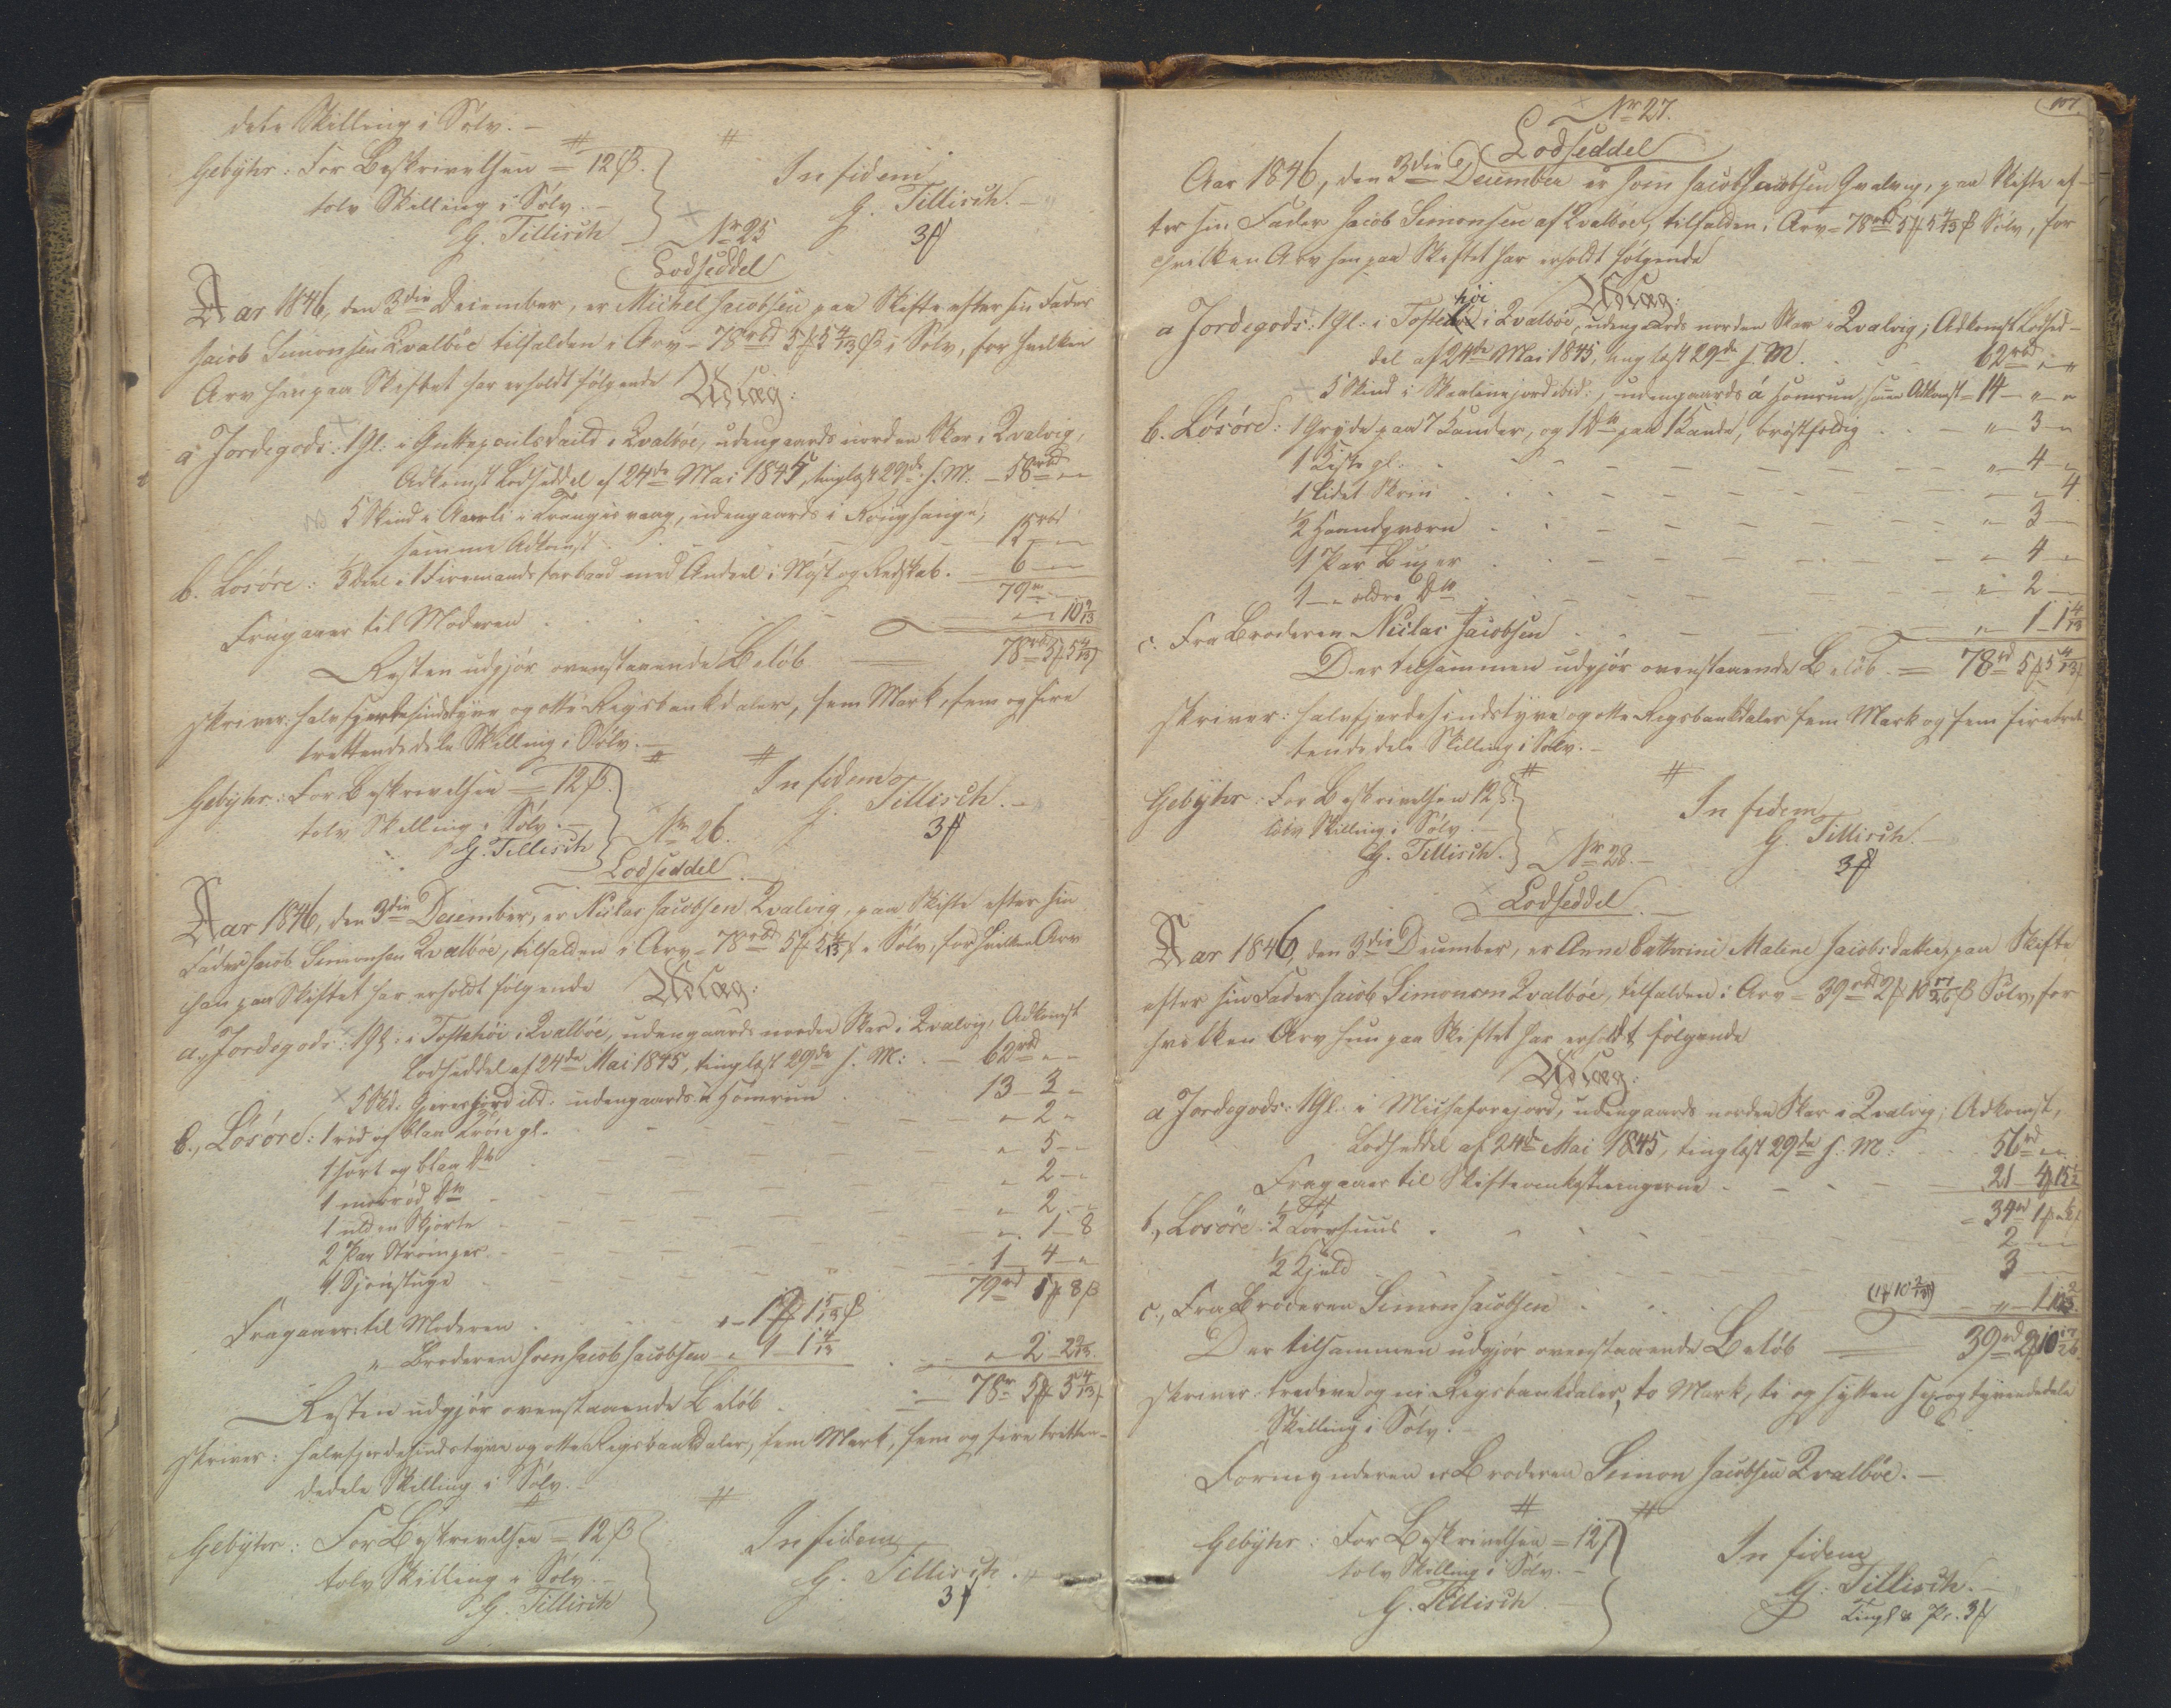 dele Skilling i Sølv. –
Gebyhr: For Beskrivelsen = 12 ß.
tolv Skilling i Sølv. –
G. Tillisch
In fidem
G. Tillisch. –
3 ß
Nr 25
Lodseddel
Aar 1846, den 3die December, er Michel Jacobsen paa Skifte efter sin Fader
Jacob Simonsen Qvalböe tilfalden i Arv – 78 rbd 5 ß 5 4/13 ß i Sølv, for hvilken
Arv han paa Skiftet har erholdt følgende Udlæg:
a Jordegods: 1 Gl: i i Qvalböe, udengaards norden Skor i Qvalvig,
Adkomst Lodseddel af 24de Mai 1845, tinglæst 29de s. M: – 58 rbd " "
5 Skind i i Trangisvaag, udengaards i
samme Adkomst – 15 rbd
b. Losöre: 1/3 Deel i 1 Firemandsfarbaad med Andeel i Nøst og Redskab. – 6 – " –
79 "
Fragaaer til Moderen – " – " 10 9/13
Resten udgjør ovenstaaende Beløb = 78 rbd 5 ß 5 4/13 ß
skriver: halvfjerdesindstyve og otte Rigsbankdaler, fem Mark, fem og fire
trettendedele Skilling i Sølv. –
Gebyhr: For Beskrivelsen = 12 ß.
tolv Skilling i Sølv. –
G. Tillisch
In fidem
G. Tillisch. –
3 ß
Nr 26.
Lodseddel.
Aar 1846, den 3die December, er Niclas Jacobsen Qvalvig, paa Skifte efter sin
Fader Jacob Simonsen Qvalböe, tilfalden i Arv – 78 rbd 5 ß 5 4/13 ß i Sølv, for hvilken Arv
han paa Skiftet har erholdt følgende Udlæg:
a, Jordegods: 1 Gl: i Toftehöi i Qvalböe, udengaards norden Skor i Qvalvig, Adkomst
Lodseddel af 24de Mai 1845, tinglæst 29de s. M: – 62 rbd " "
5 Skd: ibd: udengaards á Homrum 13 – 3 –
b., Losöre: 1 rød og blaa Trøie gl. " – 2 –
1 sort og blaa Dto " – 5 –
1 Dto " – 2 –
1 ulden Skjorte " – 2 –
2 Par Strömper – " – 1 – 8
1 – 4 – "
79 rd 5 ß 8 ß
Fragaaer: til Moderen " – 1 ß 1 5/13 ß
" – Broderen Joen Jacob Jacobsen " 1 – 1 4/13 " – 2 – 2 9/13
Resten udgjør ovenstaaende Beløb = 78 r 5 ß 5 4/13 ß
skriver: halvfjerdesindstyve og otte Rigsbankdaler, fem Mark, fem og fire tretten-
dedele Skilling i Sølv. –
Gebyhr: For Beskrivelsen = 12 ß
tolv Skilling i Sølv. –
G. Tillisch
In fidem
G. Tillisch. –
3 ß
107
Nr 27.
Lodseddel
Aar 1846, den 3die December er Joen Jacob Jacobsen Qvalvig, paa Skifte ef-
ter sin Fader Jacob Simonsen af Qvalböe, tilfalden i Arv – 78 rbd 5 ß 5 4/13 ß Sølv, for
hvilken Arv han paa Skiftet har erholdt følgende
Udlæg:
a Jordegods: 1 Gl: i Toftehöi i Qvalböe, udengaards norden Skor i Qvalvig; Adkomst Lodsed-
del af 24de Mai 1845, tinglæst 29de s. M. 62 rbd " "
5 Skind i ibid:, udengaards á Homrum, samme Adkomst – 14 – " – "
b. Lösöre: 1 Gryde paa 7 Kander, og 1 Dto paa 1 Kande, brøstfeldig – " – 3 – "
1 Kiste gl. " – 4 – "
1 lidet Skrin – " – 4
1/2 Haandqværn – " – 3 –
1 Par Buxer – " – 4 – "
1 – " ældre Dto " – 2 –
c. Fra Broderen Niclas Jacobsen " – 1 – 1 4/13
Der tilsammen udgjør ovenstaaende Beløb. = 78 rd 5 ß 5 4/13 ß
skriver: halvfjerdesindstyve og otte Rigsbankdaler fem Mark og fem fire tret-
tendedele Skilling i Sølv. –
Gebyhr: For Beskrivelsen 12 ß.
tolv Skilling i Sølv. –
G. Tillisch.
In fidem
G. Tillisch. –
3 ß
Nr 28. –
Lodseddel. –
Aar 1846, den 3die December, er Anne Cathrine Malene Jacobsdatter, paa Skifte
efter sin Fader Jacob Simonsen Qvalböe, tilfalden i Arv – 39 rbd 2 ß 10 17/26 ß Sølv, for
hvilken Arv hun paa Skiftet har erholdt følgende
Udlæg:
a Jordegods: 1 Gl: i , udengaards norden Skor i Qvalvig; Adkomst,
Lodseddel af 24de Mai 1845, tinglæst 29de s. M: 56 rd " "
Fragaaer til Skifteomkostningerne – 21 – 4 ß 15 1/2
= 34 rd 1 ß " 1/2 ß
b., Losöre: 2 – "
1/2 3 –
c., Fra Broderen Simon Jacobsen (1 ß 10 2/13) – " – 1 10 2/13
Der tilsammen udgjør ovenstaaende Beløb = 39 rd 2 ß 10 17/26
skriver: tredive og ni Rigsbankdaler, to Mark, ti og sytten sex og tyvendedele
Skilling i Sølv. –
Formynderen er Broderen Simon Jacobsen Qvalböe. –
Gebyhr: For Beskrivelsen = 12 ß
tolv Skilling i Sølv. –
G. Tillisch
In fidem
G. Tillisch. –
3 ß